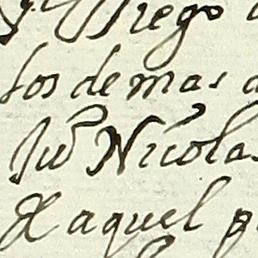 Diego
los demas
Juº Nicolas
Xaquel